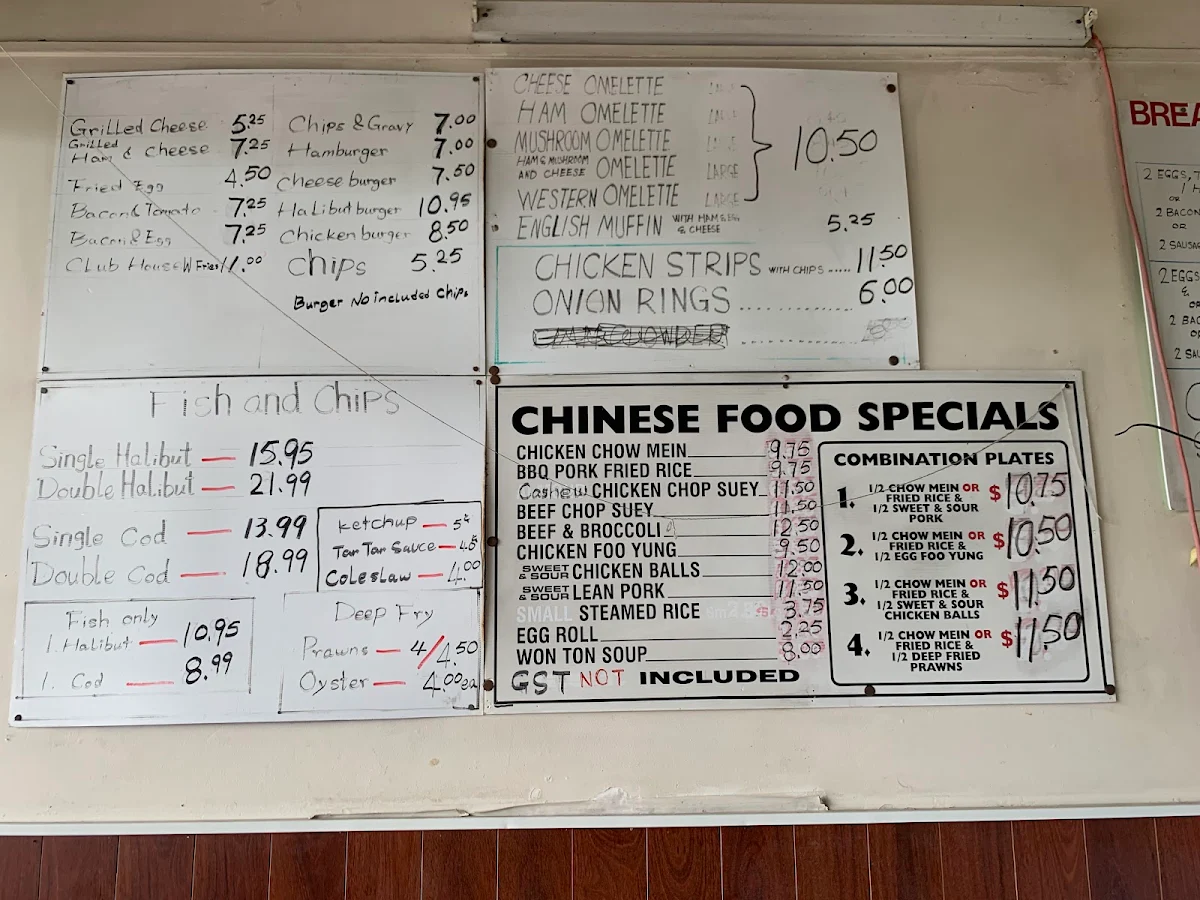 Grilled Cheese 5.25
Grilled Ham & Cheese 7.25
Fried Egg 4.50
Bacon & Tomato 7.25
Bacon & Egg 7.25
Club House W Fries 11.00
Chips & Gravy 7.00
Hamburger 7.00
Cheese burger 7.50
Halibut burger 10.95
Chicken burger 8.50
Chips 5.25
Burger No included Chips
CHEESE OMELETTE
HAM OMELETTE
MUSHROOM OMELETTE
HAM & MUSHROOM AND CHEESE OMELETTE LARGE
WESTERN OMELETTE LARGE
10.50
ENGLISH MUFFIN WITH HAM & EGG & CHEESE 5.25
CHICKEN STRIPS WITH CHIPS ..... 11.50
ONION RINGS .............. 6.00
Fish and Chips
Single Halibut — 15.95
Double Halibut — 21.99
Single Cod — 13.99
Double Cod — 18.99
Ketchup — 5¢
Tar Tar Sauce —
Coleslaw — 4.00
Fish only
1. Halibut — 10.95
1. Cod — 8.99
Deep Fry
Prawns — 4/4.50
Oyster — 4.00ea
CHINESE FOOD SPECIALS
CHICKEN CHOW MEIN 9.75
BBQ PORK FRIED RICE 9.75
Cashew CHICKEN CHOP SUEY 11.50
BEEF CHOP SUEY 11.50
BEEF & BROCCOLI 12.50
CHICKEN FOO YUNG 9.50
SWEET & SOUR CHICKEN BALLS 12.00
SWEET & SOUR LEAN PORK 11.50
SMALL STEAMED RICE 3.75
EGG ROLL 2.25
WON TON SOUP 8.00
GST NOT INCLUDED
COMBINATION PLATES
1. 1/2 CHOW MEIN OR
FRIED RICE &
1/2 SWEET & SOUR
PORK
$10.75
2. 1/2 CHOW MEIN OR
FRIED RICE &
1/2 EGG FOO YUNG
$10.50
3. 1/2 CHOW MEIN OR
FRIED RICE &
1/2 SWEET & SOUR
CHICKEN BALLS
$11.50
4. 1/2 CHOW MEIN OR
FRIED RICE &
1/2 DEEP FRIED
PRAWNS
$11.50
BREA
2 EGGS, T
OR
2 BACON
OR
2 SAUSA
2 EGGS
&
OR
2 BAC
OR
2 SAU